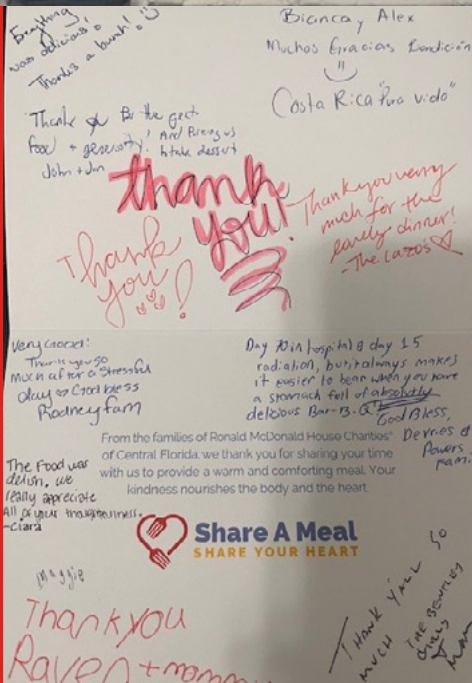 Everything
was delicious!
Thanks a bunch!
Bianca y Alex
Muchos Gracias Bendición
Costa Rica "Pura vida"
Thank you for the great
food + generosity! And Bring us
to take dessert
John + Jan
thank
you!
Thank you very
much for the
lovely dinner!
- The Lazos
Thank
you!
Very Good!
Thank you so
much after a stressful
day God bless
Rodney fam
Day 70 in hospital & day 15
radiation, but it always makes
it easier to bear when you have
a stomach full of absolutely
delicious Bar-B-Q!
God Bless,
Devries &
Powers
Fam.
From the families of Ronald McDonald House Charities®
of Central Florida, we thank you for sharing your time
with us to provide a warm and comforting meal. Your
kindness nourishes the body and the heart.
The Food was
delish, we
really appreciate
All of your thoughtfulness.
- Ciara
Share A Meal
SHARE YOUR HEART
Maggie
Thank you
Raven + mommy
THANK Y'ALL SO
MUCH
THE BENTLEY